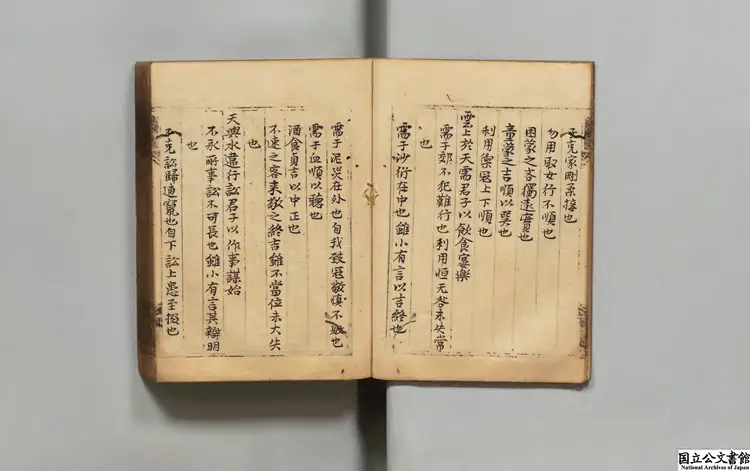 子克家剛柔接也
勿用取女行不順也
困蒙之吝獨遠實也
童蒙之吉順以巽也
利用禦寇上下順也
雲上於天需君子以飮食宴樂
需于郊不犯難行也利用恒无咎未失常
也
需于沙衍在中也雖小有言以吉終也
需于泥災在外也自我致寇敬慎不敗也
需于血順以聽也
酒食貞吉以中正也
不速之客來敬之終吉雖不當位未大失
也
天與水違行訟君子以作事謀始
不永所事訟不可長也雖小有言其辯明
也
不克訟歸逋竄也自下訟上患至掇也
国立公文書館
National Archives of Japan